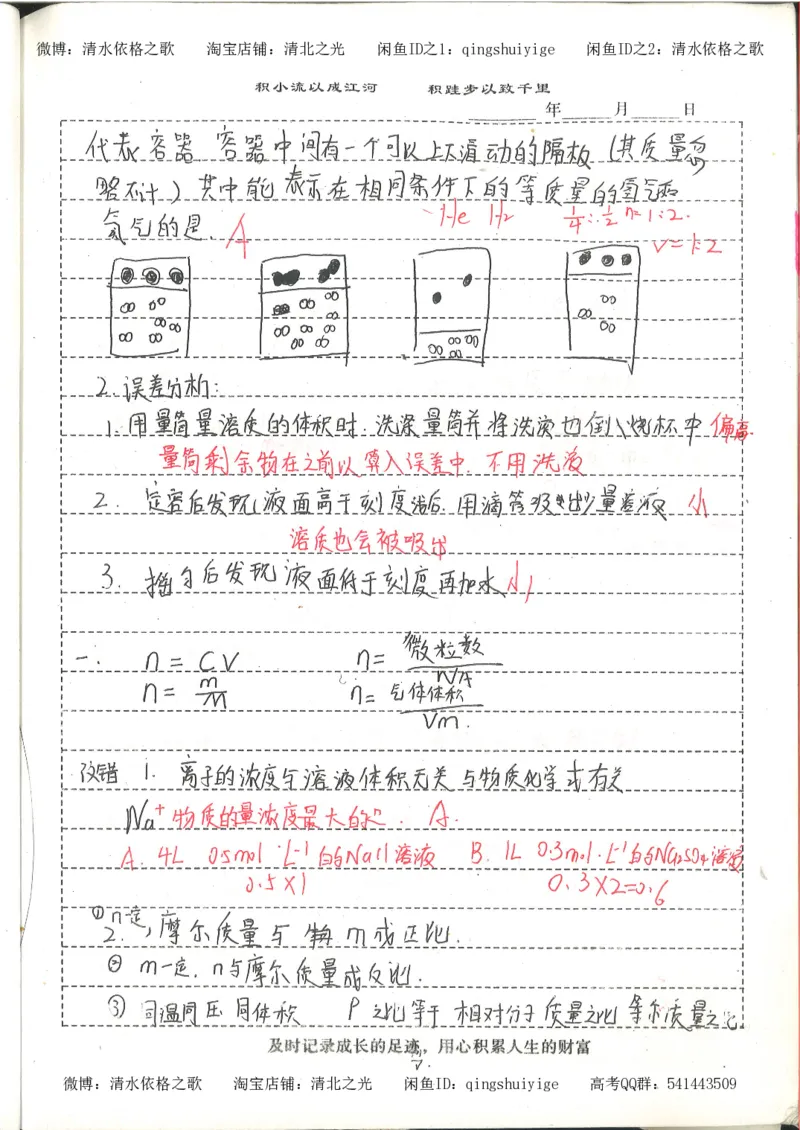 微博：清水依格之歌 淘宝店铺：清北之光 闲鱼ID之1：qingshuiyige 闲鱼ID之2：清水依格之歌
积小流以成江河 积跬步以致千里
年 月 日
代表容器 容器中间有一个可以上下滑动的隔板（其质量忽
略不计）其中能表示在相同条件下的等质量的氢气和
氦气的是. A
He H₂ 1/4:1/2 n=1:2.
V=1:2
2.误差分析:
1.用量筒量溶质的体积时.洗涤量筒并将洗液也倒入烧杯中 偏高
量筒剩余物在之前以算入误差中.不用洗液
2. 定容后发现液面高于刻度线后.用滴管吸出少量溶液 小
溶质也会被吸出
3. 摇匀后发现液面低于刻度再加水 小
一. n=CV n=微粒数/NA
n=m/M n=气体体积/Vm.
改错 1. 离子的浓度与溶液体积无关 与物质化学式有关
Na⁺物质的量浓度最大的是. A.
A. 4L 0.5mol·L⁻¹的NaCl溶液 B. 1L 0.3mol·L⁻¹的Na₂SO₄溶液
0.5×1 0.3×2=0.6
2. ①n一定,摩尔质量与 m成正比.
② m一定.n与摩尔质量成反比.
③ 同温同压 同体积 ρ之比等于相对分子质量之比 等 质量之比
及时记录成长的足迹，用心积累人生的财富
微博：清水依格之歌 淘宝店铺：清北之光 闲鱼ID：qingshuiyige 高考QQ群：541443509